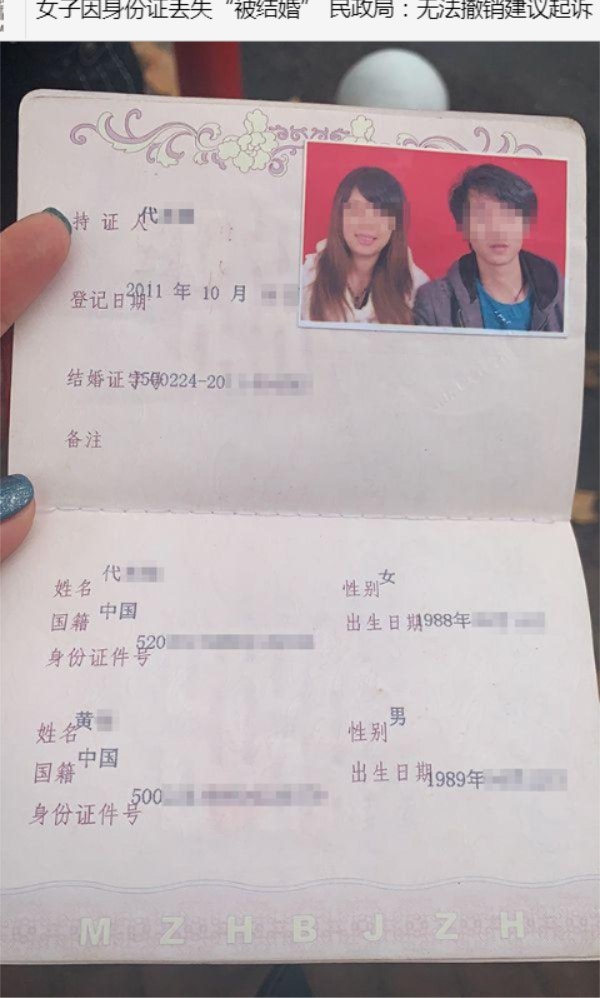 女子因身份证丢失“被结婚” 民政局：无法撤销建议起诉
持证人 代
登记日期 2011 年 10 月
结婚证字号 J500224-20
备注
姓名 代 性别 女
国籍 中国 出生日期 1988年
身份证件号 520
姓名 黄 性别 男
国籍 中国 出生日期 1989年
身份证件号 500
M Z H B J Z H